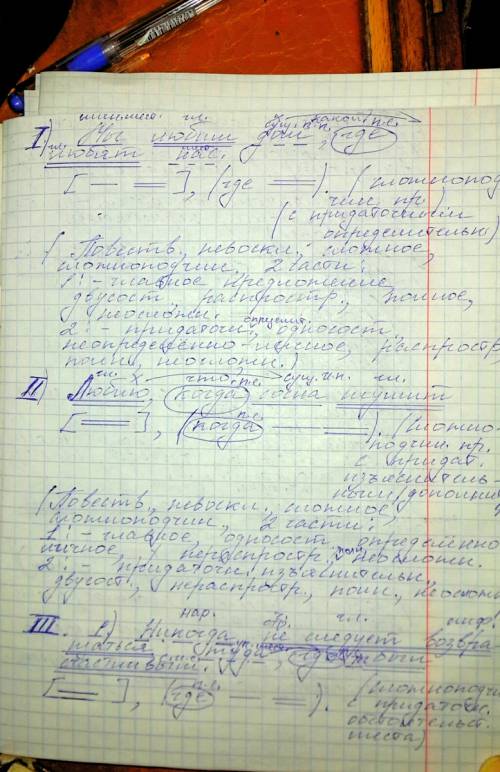 мн.место. гл. сущ. п.п. какой? п.с.
I) Мы любим дом, где
гл. мест.
любят нас.
[— ═], (где ═). (сложнопод
чин. пр.
(с придаточным
определительн)
( Повеств., невоскл., сложное,
сложноподчин., 2 части:
1: - главное предложение,
двусост., распростр., полное,
неосложн. определит.
2: - придаточн., односост.,
неопределенно-личное, распростр,
полн., неосложн.)
гл. х что? п.с. сущ. и.п. гл.
II) Люблю, когда сосна шумит
п.с.
[═], (когда — ═). (сложно-
подчин. пр.
с придат.
изъяснитель-
ным дополнит
(Повеств., невоскл., сложное,
сложноподчин., 2 части:
1: - главное, односост., определенно
личное, нераспростр., полн, неосложн.
2: - придаточн. изъяснительн.,
двусост., нераспростр., полн., неосложн
нар. гл. инф.
III. 1) Никогда не следует возвра
щаться туда, где ты был
счастлив.
п.с.
[═], (где — ═). (сложноподч
с придаточн.
обстоятельст.
места)